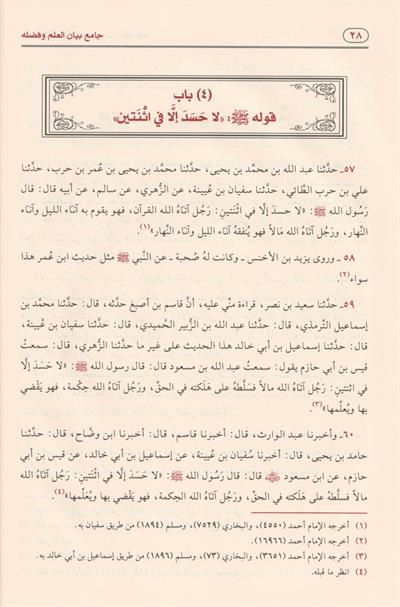 ٢٨ جامع بيان العلم وفضله
(٤) باب
قوله ﷺ: «لا حَسَدَ إلَّا في اثْنَتين»
٥٧ـ حدَّثنا عبد الله بن محمَّد بن يحيى، حدَّثنا محمَّد بن يحيى بن عُمر بن حرب، حدَّثنا
علي بن حرب الطَّائي، حدَّثنا سفيان بن عُيينة، عن الزُّهري، عن سالم، عن أبيه قال: قال
رَسُول الله ﷺ: «لا حسدَ إلَّا في اثْنَتين: رَجُل آتاهُ الله القرآن، فهو يقوم به آناء الليل وآناء
النَّهار، ورَجُل آتاهُ الله مَالاً فهو يُنفقهُ آناء الليل وآناء النَّهار»(١).
٥٨ـ وروى يزيد بن الأخنس ـ وكانت لهُ صُحبة ـ عن النَّبي ﷺ مثل حديث ابن عُمر هذا
سواء(٢).
٥٩ـ حدَّثنا سعيد بن نصر، قراءة منِّي عليه، أنَّ قاسم بن أصبغ حدَّثه، قال: حدَّثنا محمَّد بن
إسماعيل التِّرمذي، قال: حدَّثنا عبد الله بن الزُّبير الحُميدي، قال: حدَّثنا سفيان بن عُيينة،
قال: حدَّثنا إسماعيل بن أبي خالد هذا الحديث على غير ما حدَّثنا الزهري، قال: سمعتُ
قيس بن أبي حازم يقول: سمعتُ عبد الله بن مسعود قال: قال رسول الله ﷺ: «لا حَسَدَ إلَّا
في اثنتينِ: رَجُل آتاهُ الله مالاً فسَلَّطهُ على هَلكته في الحقِّ، ورَجُل آتاهُ الله حِكمة، فهو يَقْضي
بها ويُعلِّمها»(٣).
٦٠ـ وأخبرنا عبد الوارث، قال: أخبرنا قاسم، قال: أخبرنا ابن وضَّاح، قال: حدَّثنا
حامد بن يحيى، قال: أخبرنا سُفيان بن عُيينة، عن إسماعيل بن أبي خالد، عن قيس بن أبي
حازم، عن ابن مسعود ﷺ قال: قال رَسُول الله ﷺ: «لا حَسَدَ إلَّا في اثْنَتَينِ: رَجُل آتاهُ الله
مالاً فسلَّطهُ على هَلكته في الحَقِّ، ورَجُل آتاهُ الله الحِكمة، فهو يَقْضي بها ويُعلِّمُها»(٤).
(١) أخرجه الإمام أحمد (٤٥٥٠)، والبخاري (٧٥٢٩)، ومسلم (١٨٩٤) من طريق سفيان به.
(٢) أخرجه الإمام أحمد (١٦٩٦٦).
(٣) أخرجه الإمام أحمد (٣٦٥١)، والبخاري (٧٣)، ومسلم (١٨٩٦) من طريق إسماعيل بن أبي خالد به.
(٤) انظر ما قبله.